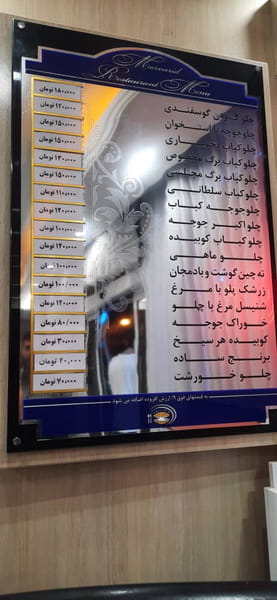 Morvarid
Restaurant Menu
چلو گردن گوسفندی ۱۸۰,۰۰۰ تومان
چلو جوجه با استخوان ۱۲۰,۰۰۰ تومان
چلو کباب بختیاری ۱۵۰,۰۰۰ تومان
چلو کباب برگ مخصوص ۱۵۰,۰۰۰ تومان
چلو کباب برگ مجلسی ۱۳۰,۰۰۰ تومان
چلو کباب سلطانی ۱۵۰,۰۰۰ تومان
چلو جوجه کباب ۱۱۰,۰۰۰ تومان
چلو اکبر جوجه ۱۲۰,۰۰۰ تومان
چلو کباب کوبیده ۱۰۰,۰۰۰ تومان
چلو ماهی ۱۲۰,۰۰۰ تومان
ته چین گوشت و بادمجان ۱۰۰,۰۰۰ تومان
زرشک پلو با مرغ ۱۰۰/۰۰۰ تومان
شنیسل مرغ با چلو ۱۲۰,۰۰۰ تومان
خوراک جوجه ۸۰/۰۰۰ تومان
کوبیده هر سیخ ۳۰,۰۰۰ تومان
برنج ساده ۲۰,۰۰۰ تومان
چلو خورشت ۷۰,۰۰۰ تومان
به قیمتهای فوق ۹٪ ارزش افزوده اضافه می شود